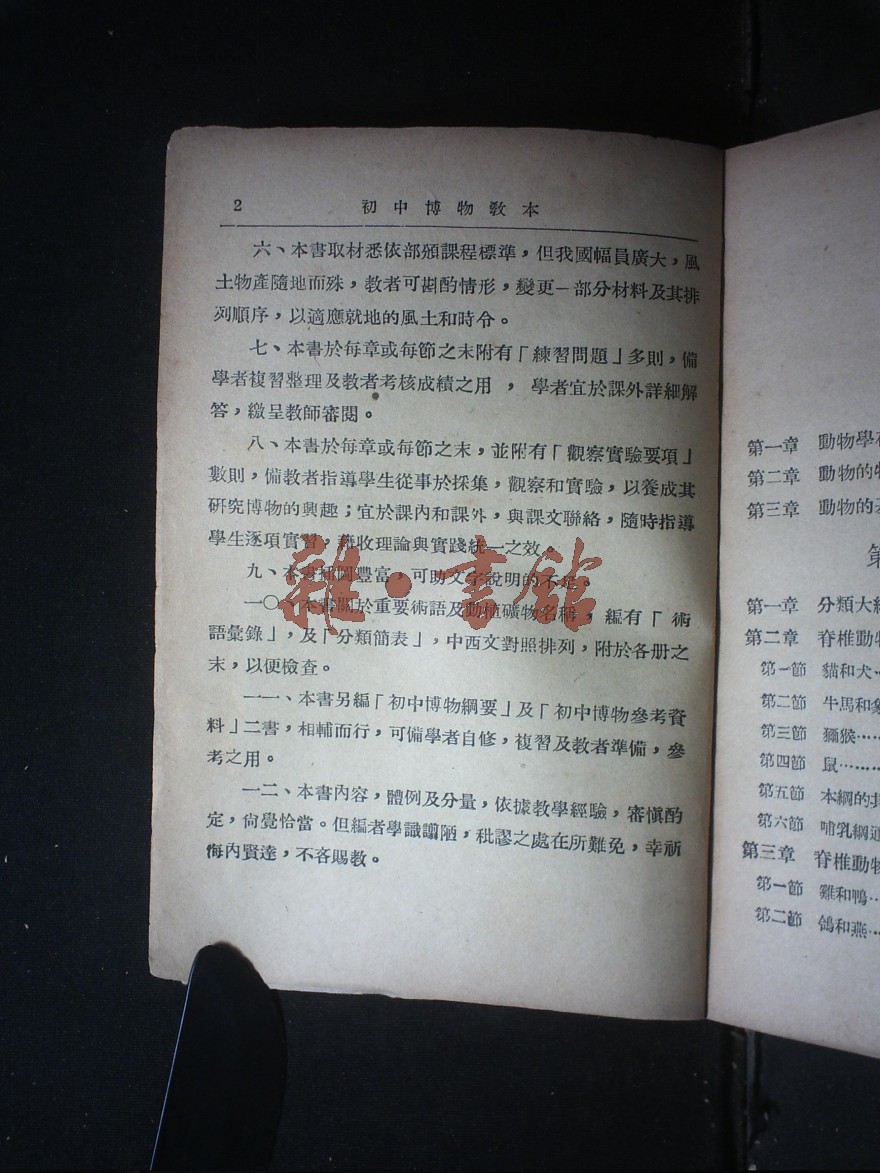 2 初中博物教本
六、本書取材悉依部頒課程標準，但我國幅員廣大，風
土物產隨地而殊，教者可斟酌情形，變更一部分材料及其排
列順序，以適應就地的風土和時令。
七、本書於每章或每節之末附有「練習問題」多則，備
學者複習整理及教者考核成績之用，學者宜於課外詳細解
答，繳呈教師審閱。
八、本書於每章或每節之末，並附有「觀察實驗要項」
數則，備教者指導學生從事於採集，觀察和實驗，以養成其
研究博物的興趣；宜於課內和課外，與課文聯絡，隨時指導
學生逐項實習，藉收理論與實踐統一之效。
九、本書插圖豐富，可助文字說明的不足。
一〇、本書關於重要術語及動植礦物名稱，編有「術
語彙錄」，及「分類簡表」，中西文對照排列，附於各册之
末，以便檢查。
一一、本書另編「初中博物綱要」及「初中博物參考資
料」二書，相輔而行，可備學者自修，複習及教者準備，參
考之用。
一二、本書內容，體例及分量，依據教學經驗，審愼酌
定，尙覺恰當。但編者學識譾陋，秕謬之處在所難免，幸祈
海內賢達，不吝賜教。
雜·書館
第一章 動物學
第二章 動物的
第三章 動物的
第
第一章 分類大
第二章 脊椎動物
第一節 貓和犬
第二節 牛馬和象
第三節 獼猴……
第四節 鼠………
第五節 本綱的其
第六節 哺乳綱通
第三章 脊椎動物
第一節 雞和鴨…
第二節 鴿和燕…